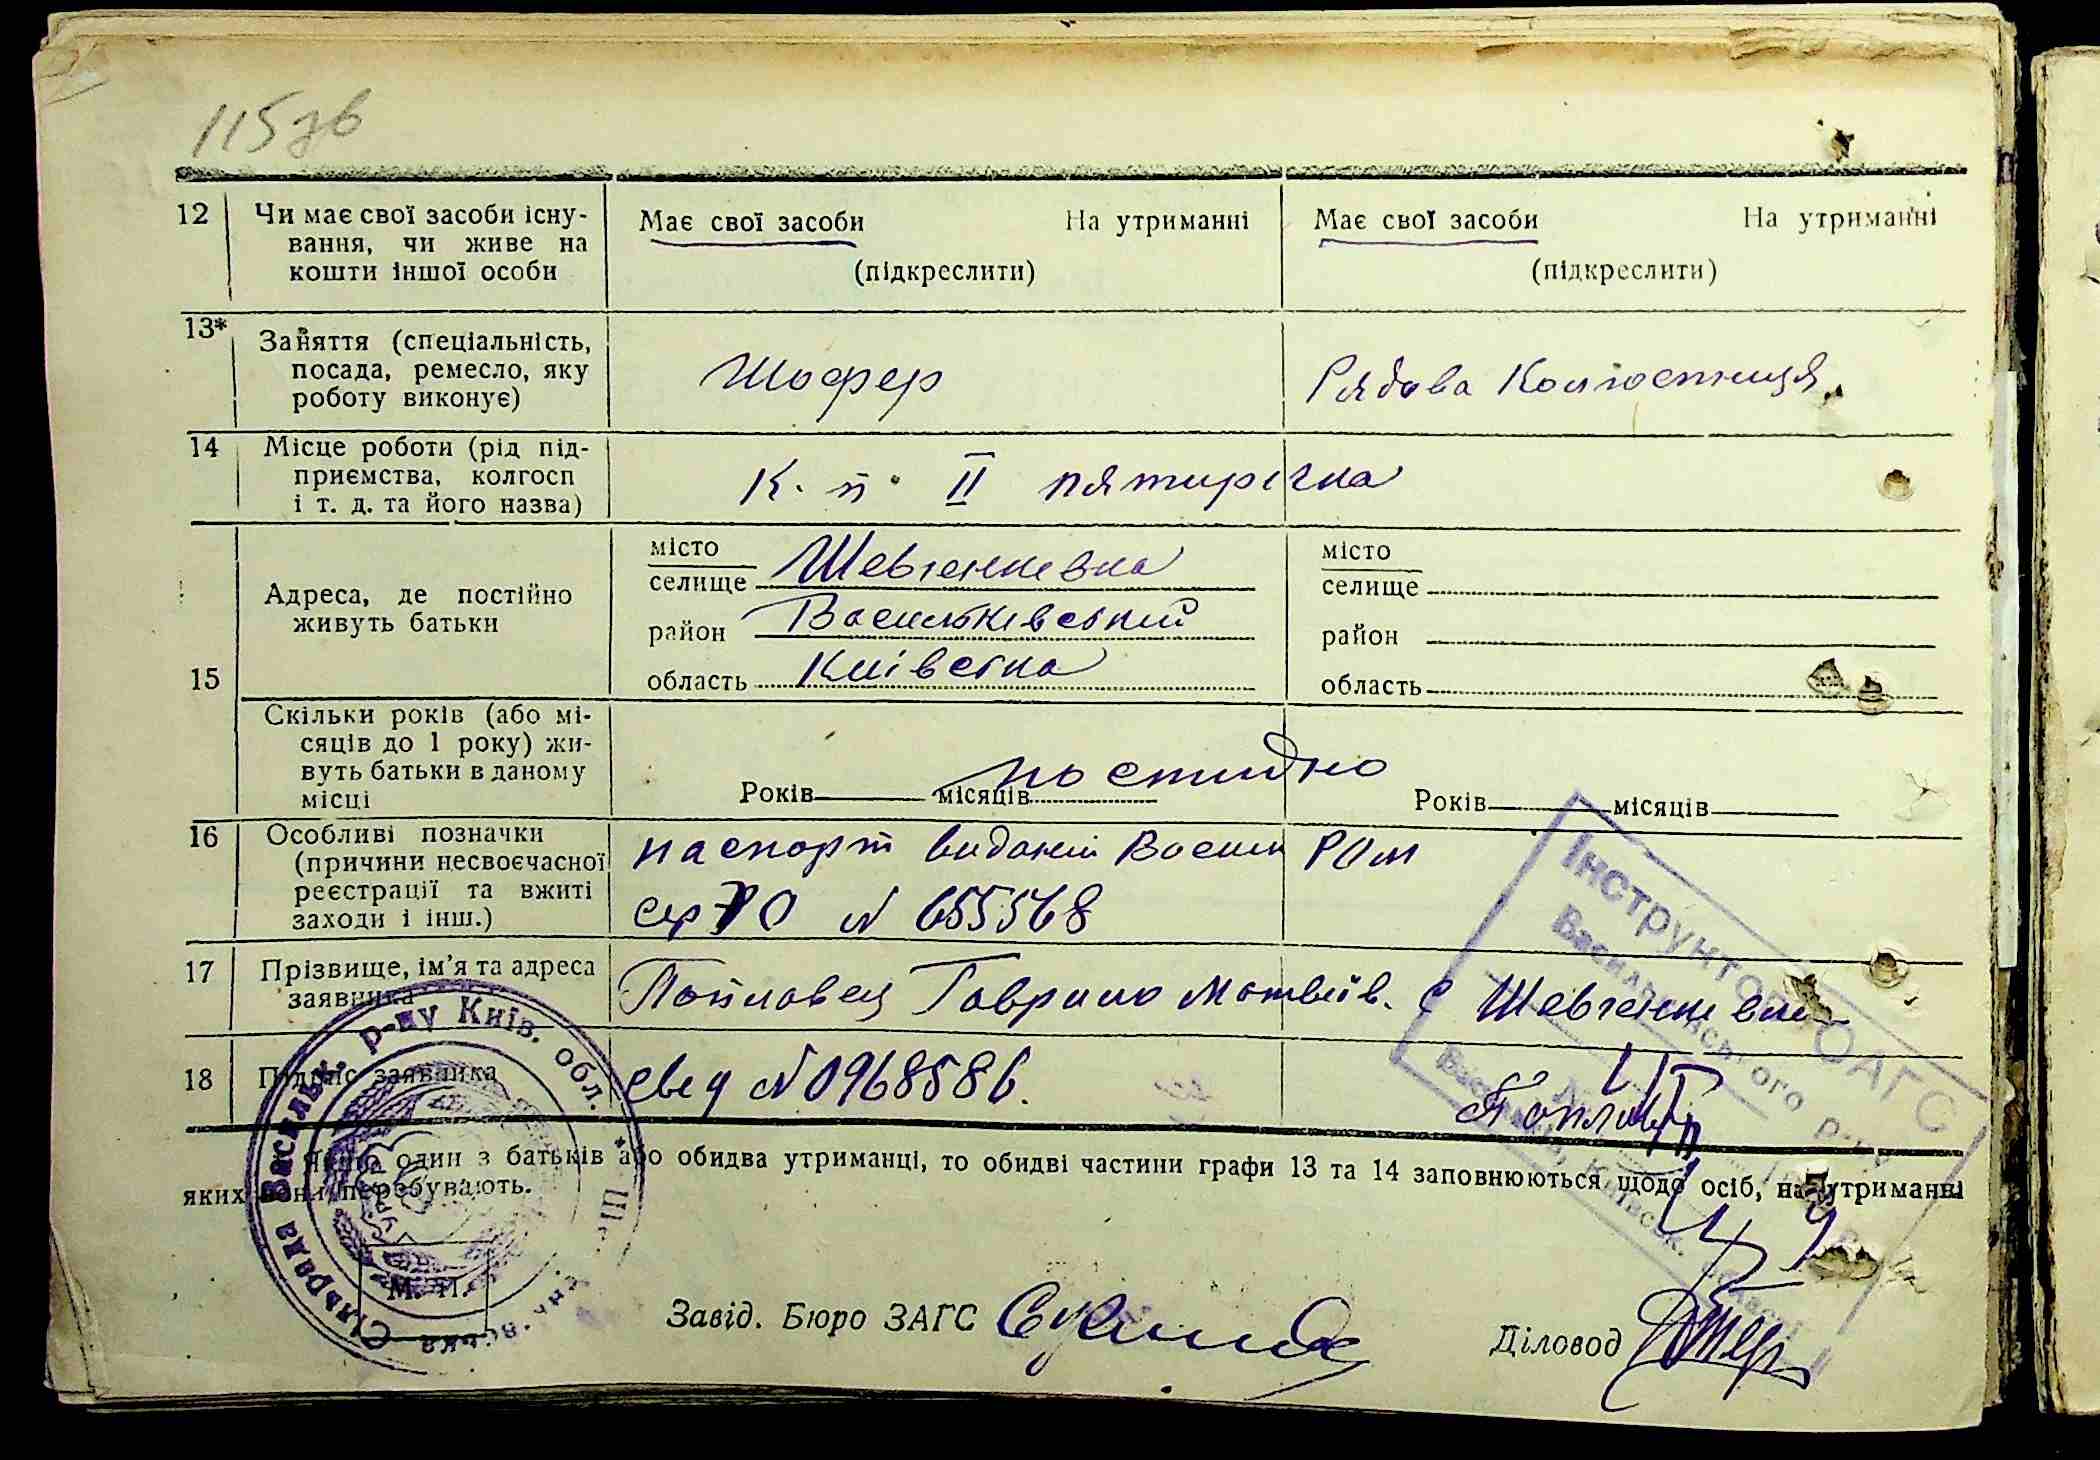 115зв
12 Чи має свої засоби існу-
вання, чи живе на
кошти іншої особи
Має свої засоби На утриманні
(підкреслити)
Має свої засоби На утриманні
(підкреслити)
13* Заняття (спеціальність,
посада, ремесло, яку
роботу виконує)
Шофер
Рядова Колгоспниця.
14 Місце роботи (рід під-
приємства, колгосп
і т. д. та його назва)
К. п. II пятирічка
15 Адреса, де постійно
живуть батьки
місто
селище Шевченкевка
район Васильківський
область Київска
місто
селище
район
область
Скільки років (або мі-
сяців до 1 року) жи-
вуть батьки в даному
місці
Років місяців
постидно
Років місяців
16 Особливі позначки
(причини несвоєчасної
реєстрації та вжиті
заходи і інш.)
паспорт виданий Васильк РОМ
сер N 655568
17 Прізвище, ім'я та адреса
заявника
Гаврило Матвіїв. с Шевченкевка
18 Підпис заявника
свід N 0968586.
Якщо один з батьків або обидва утриманці, то обидві частини графи 13 та 14 заповнюються щодо осіб, на утриманні
яких вони перебувають.
М. П.
Завід. Бюро ЗАГС
Діловод
Сільрада Васильк. р-ну Київ. обл.
Інструктор РОАГС
Васильківського р-ну
Васильків, Київськ. області